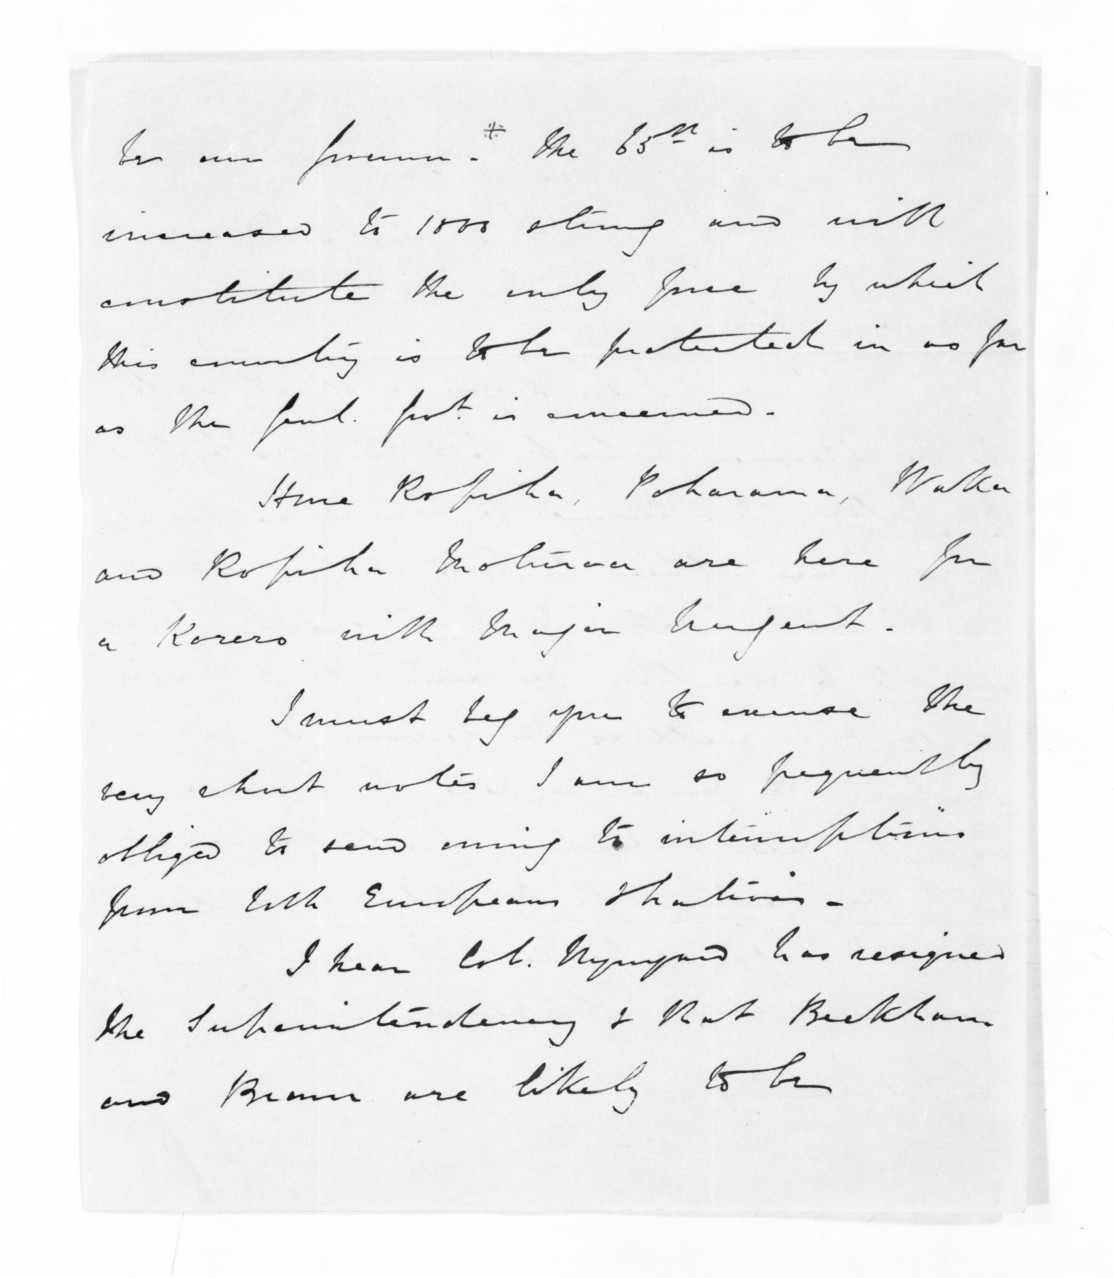 be our governor. * The 65th is to be
increased to 1000 strong and will
constitute the only force by which
this country is to be protected in as far
as the Genl. Govt. is concerned.
Hone Ropiha, Poharama, Waka
and Ropiha Moturoa are here for
a Korero with Major Nugent.
I must beg you to excuse the
very short notes I am so frequently
obliged to send owing to interruptions
from both Europeans & Natives.
I hear Col. Wynyard has resigned
the Superintendency & that Beckham
and Brown are likely to be